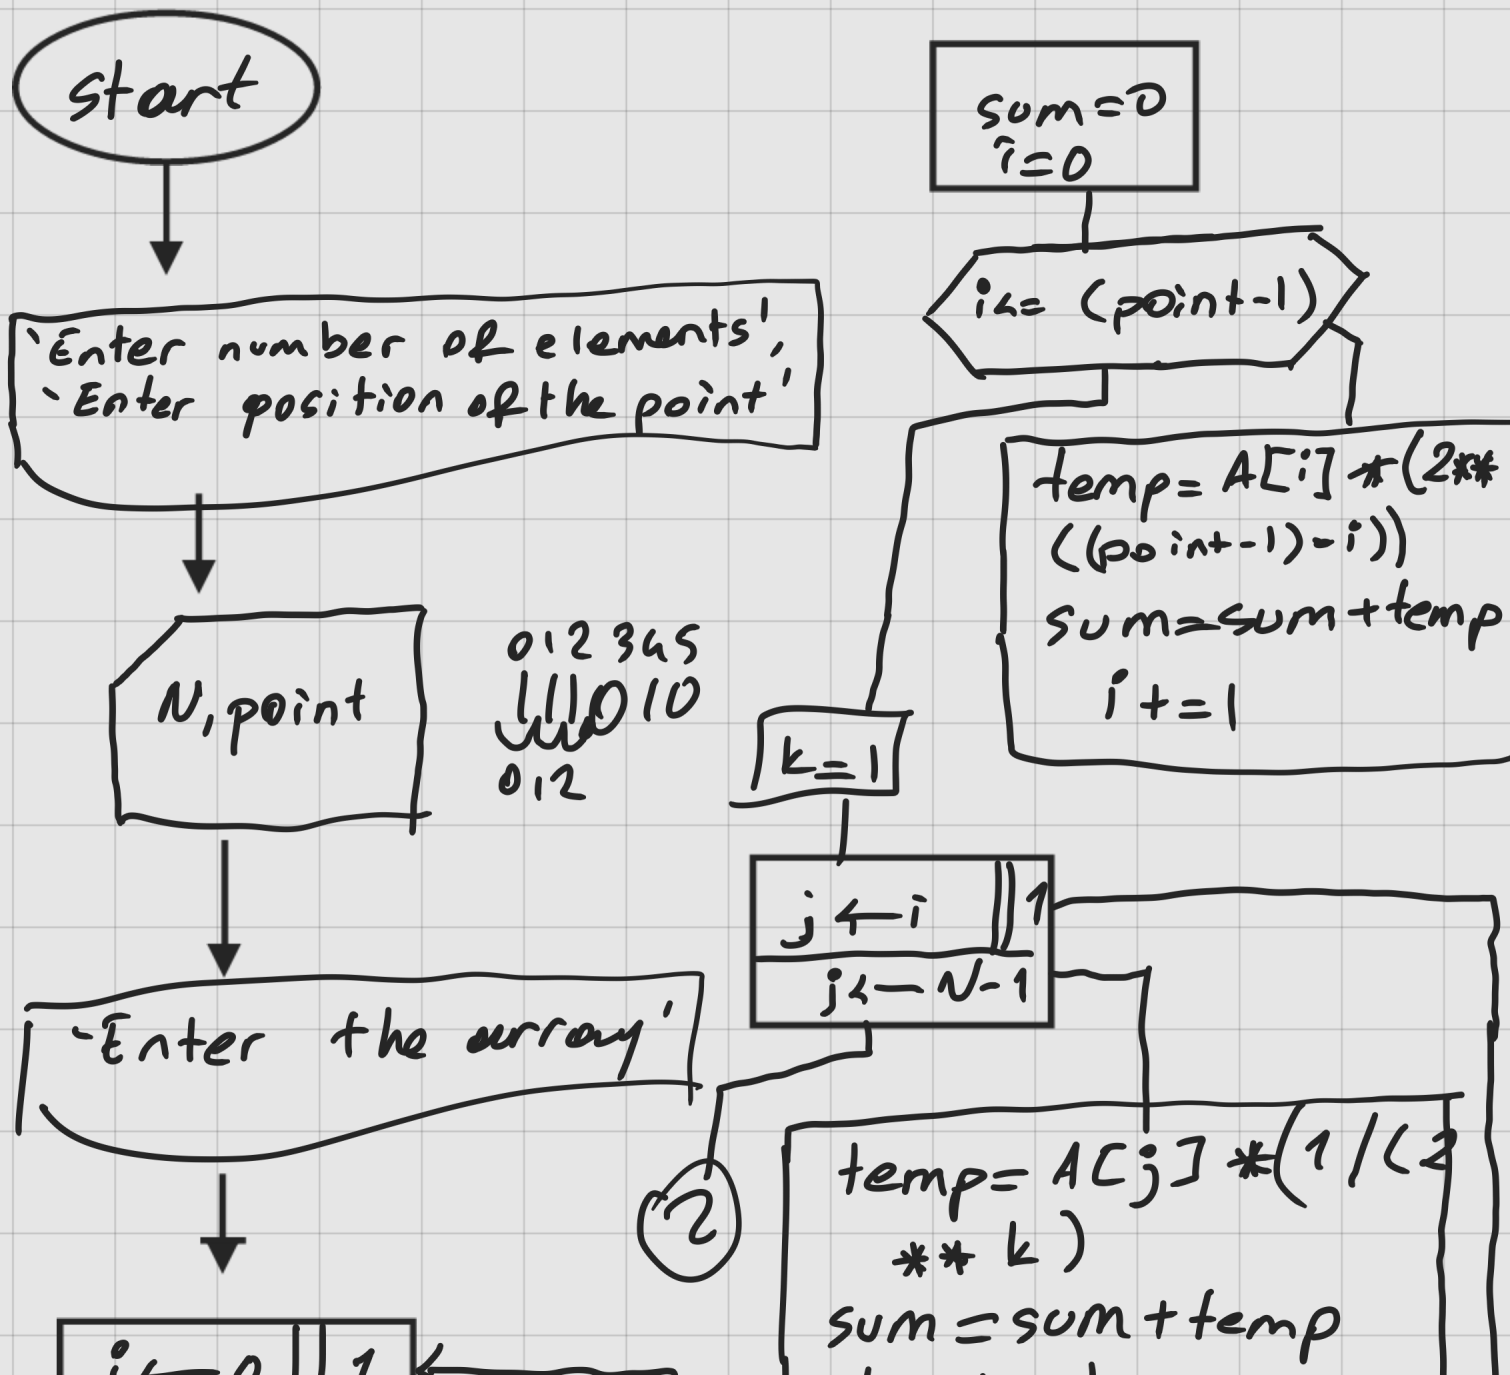 start
'Enter number of elements',
'Enter position of the point'
N, point
0 1 2 3 4 5
111010
0 1 2
'Enter the array'
sum=0
i=0
i<= (point-1)
temp= A[i] *(2**
((point-1)-i))
sum=sum+temp
i+=1
k=1
j ← i 1
j<—N-1
2
temp= A[j] *(1/(2
** k)
sum=sum+temp